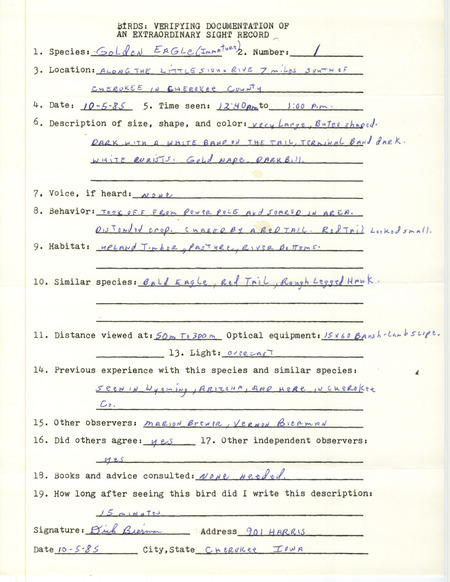 BIRDS: VERIFYING DOCUMENTATION OF
AN EXTRAORDINARY SIGHT RECORD
1. Species: Golden Eagle (Immature) 2. Number: 1
3. Location: ALONG THE LITTLE SIOUX RIVE 7 miles SOUTH OF
CHEROKEE IN CHEROKEE COUNTY
4. Date: 10-5-85 5. Time seen: 12:40pm to 1:00 P.m.
6. Description of size, shape, and color: Very Large, Buteo shaped.
DARK WITH A WHITE BAND ON THE TAIL, TERMINAL BAND dark.
WHITE BURSTS. Gold NAPE. DARK Bill.
7. Voice, if heard: NONE
8. Behavior: TOOK OFF FROM POWER POLE AND SOARED IN AREA.
Distended crop. CHASED BY A RED TAIL. Red Tail Looked small.
9. Habitat: UPLAND TIMBER, PASTURE, RIVER BOTTOMS.
10. Similar species: Bald Eagle, Red Tail, Rough Legged Hawk.
11. Distance viewed at: 50m To 300m Optical equipment: 15X60 Baush-Lomb scope.
13. Light: OVERCAST
14. Previous experience with this species and similar species:
SEEN IN Wyoming, ARIZONA, AND HERE IN CHEROKEE
Co.
15. Other observers: MARION BREWER, VERNON BIERMAN
16. Did others agree: yes 17. Other independent observers:
yes
18. Books and advice consulted: NONE needed.
19. How long after seeing this bird did I write this description:
15 minutes
Signature: Dick Bierman Address 901 HARRIS
Date 10-5-85 City, State CHEROKEE IOWA